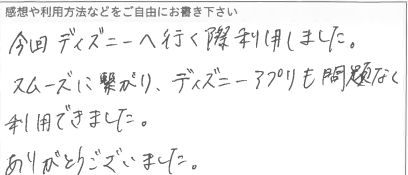 感想や利用方法などをご自由にお書き下さい
今回ディズニーへ行く際利用しました。
スムーズに繋がり、ディズニーアプリも問題なく
利用できました。
ありがとうございました。